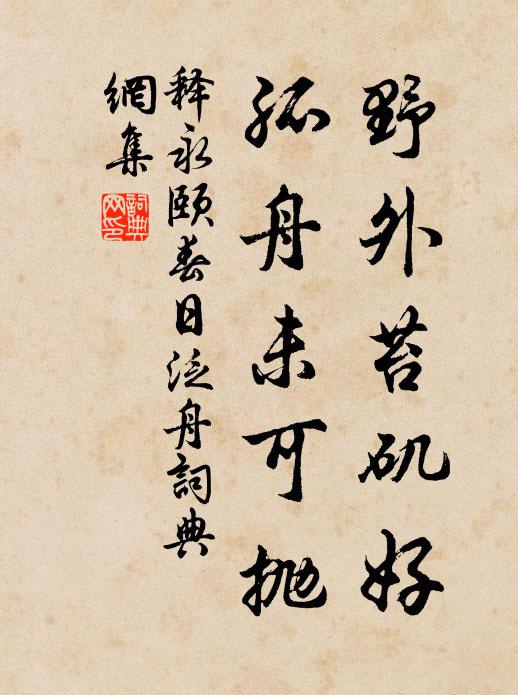 野外苔矶好
孤舟未可抛
释永颐春日泛舟詞典
網集
詞典
网印